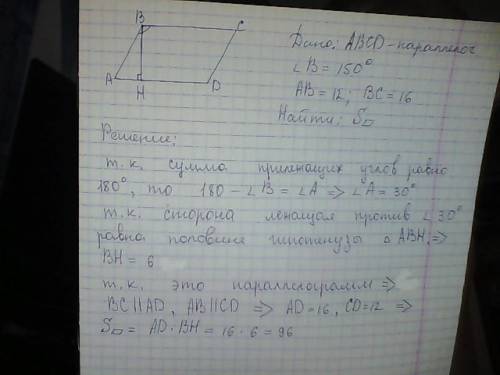 B
C
A
H
D
Дано: ABCD-параллелог
∠B = 150°
AB = 12; BC = 16
Найти: S▱
Решение:
т.к. сумма прилежащих углов равна
180°, то 180 - ∠B = ∠A => ∠A = 30°
т.к. сторона лежащая против ∠30°
равна половине гипотенузы △ ABH, =>
BH = 6
т.к. это параллелограмм =>
BC||AD, AB||CD => AD=16, CD=12 =>
S▱ = AD · BH = 16 · 6 = 96